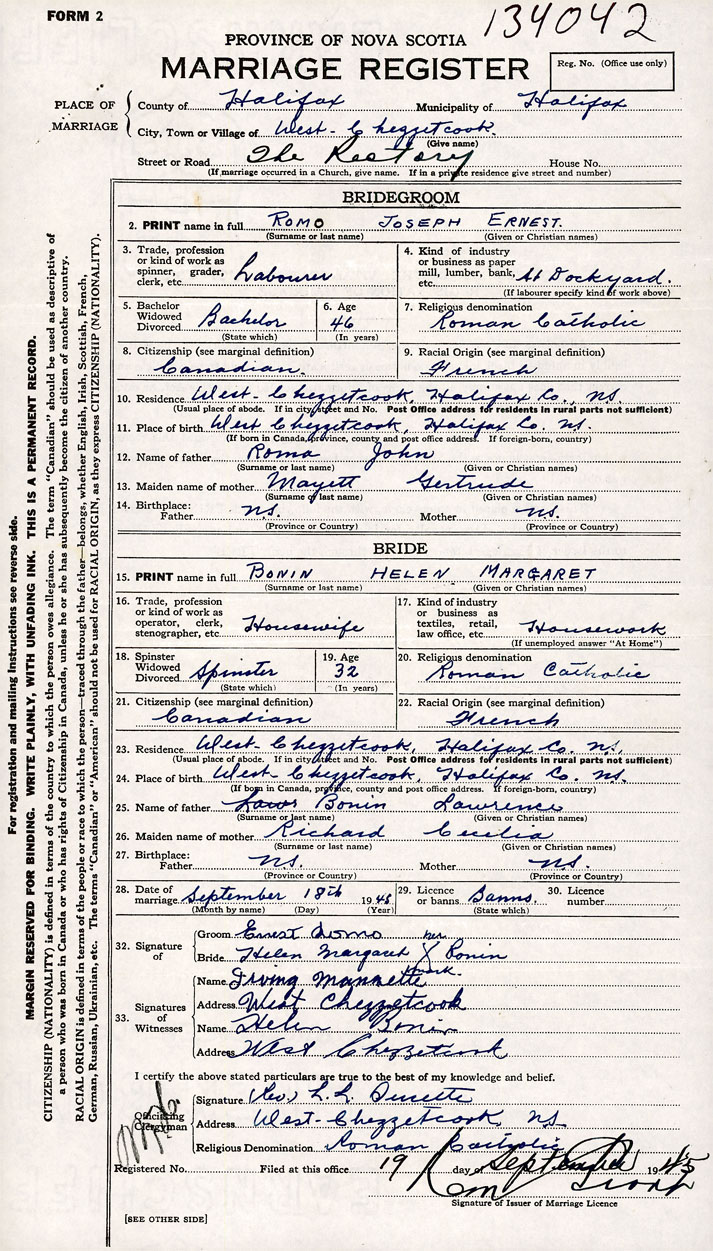 FORM 2
134042
PROVINCE OF NOVA SCOTIA
MARRIAGE REGISTER
Reg. No. (Office use only)
PLACE OF MARRIAGE
County of Halifax Municipality of Halifax
City, Town or Village of West-Chezzetcook.
(Give name)
Street or Road The Rectory House No.
(If marriage occurred in a Church, give name. If in a private residence give street and number)
BRIDEGROOM
2. PRINT name in full ROMO JOSEPH ERNEST.
(Surname or last name) (Given or Christian names)
3. Trade, profession or kind of work as spinner, grader, clerk, etc. Labourer
4. Kind of industry or business as paper mill, lumber, bank, etc. At Dockyard.
(If labourer specify kind of work above)
5. Bachelor Widowed Divorced Bachelor
(State which)
6. Age 46
(In years)
7. Religious denomination
Roman Catholic
8. Citizenship (see marginal definition)
Canadian.
9. Racial Origin (see marginal definition)
French
10. Residence West-Chezzetcook, Halifax Co., NS.
(Usual place of abode. If in city street and No. Post Office address for residents in rural parts not sufficient)
11. Place of birth West Chezzetcook, Halifax Co. NS.
(If born in Canada, province, county and post office address. If foreign-born, country)
12. Name of father Roma John
(Surname or last name) (Given or Christian names)
13. Maiden name of mother Mayett Gertrude
(Surname or last name) (Given or Christian names)
14. Birthplace:
Father NS. Mother NS.
(Province or Country) (Province or Country)
BRIDE
15. PRINT name in full BONIN HELEN MARGARET
(Surname or last name) (Given or Christian names)
16. Trade, profession or kind of work as operator, clerk, stenographer, etc. Housewife
17. Kind of industry or business as textiles, retail, law office, etc. Housework
(If unemployed answer "At Home")
18. Spinster Widowed Divorced Spinster
(State which)
19. Age 32
(In years)
20. Religious denomination
Roman Catholic
21. Citizenship (see marginal definition)
Canadian
22. Racial Origin (see marginal definition)
French
23. Residence West-Chezzetcook, Halifax Co. NS.
(Usual place of abode. If in city street and No. Post Office address for residents in rural parts not sufficient)
24. Place of birth West-Chezzetcook, Halifax Co. NS.
(If born in Canada, province, county and post office address. If foreign-born, country)
25. Name of father Bonin Lawrence
(Surname or last name) (Given or Christian names)
26. Maiden name of mother Richard Cecilia
(Surname or last name) (Given or Christian names)
27. Birthplace:
Father NS. Mother NS.
(Province or Country) (Province or Country)
28. Date of marriage September 18th 1945
(Month by name) (Day) (Year)
29. Licence or banns Banns
(State which)
30. Licence number
32. Signature of
Groom Ernest Romo
Bride Helen Margaret her X mark. Bonin
33. Signatures of Witnesses
Name Irving Mannette
Address West Chezzetcook
Name Helen Bonin
Address West Chezzetcook
I certify the above stated particulars are true to the best of my knowledge and belief.
Officiating Clergyman
Signature (Rev.) L. L.
Address West-Chezzetcook, NS
Religious Denomination Roman Catholic
Registered No. Filed at this office 19 day of September 1945
Signature of Issuer of Marriage Licence
[SEE OTHER SIDE]
For registration and mailing instructions see reverse side.
MARGIN RESERVED FOR BINDING. WRITE PLAINLY, WITH UNFADING INK. THIS IS A PERMANENT RECORD.
CITIZENSHIP (NATIONALITY) is defined in terms of the country to which the person owes allegiance. The term "Canadian" should be used as descriptive of
a person who was born in Canada or who has rights of Citizenship in Canada, unless he or she has subsequently become the citizen of another country.
RACIAL ORIGIN is defined in terms of the people or race to which the person—traced through the father—belongs, whether English, Irish, Scottish, French,
German, Russian, Ukrainian, etc. The terms "Canadian" or "American" should not be used for RACIAL ORIGIN, as they express CITIZENSHIP (NATIONALITY).